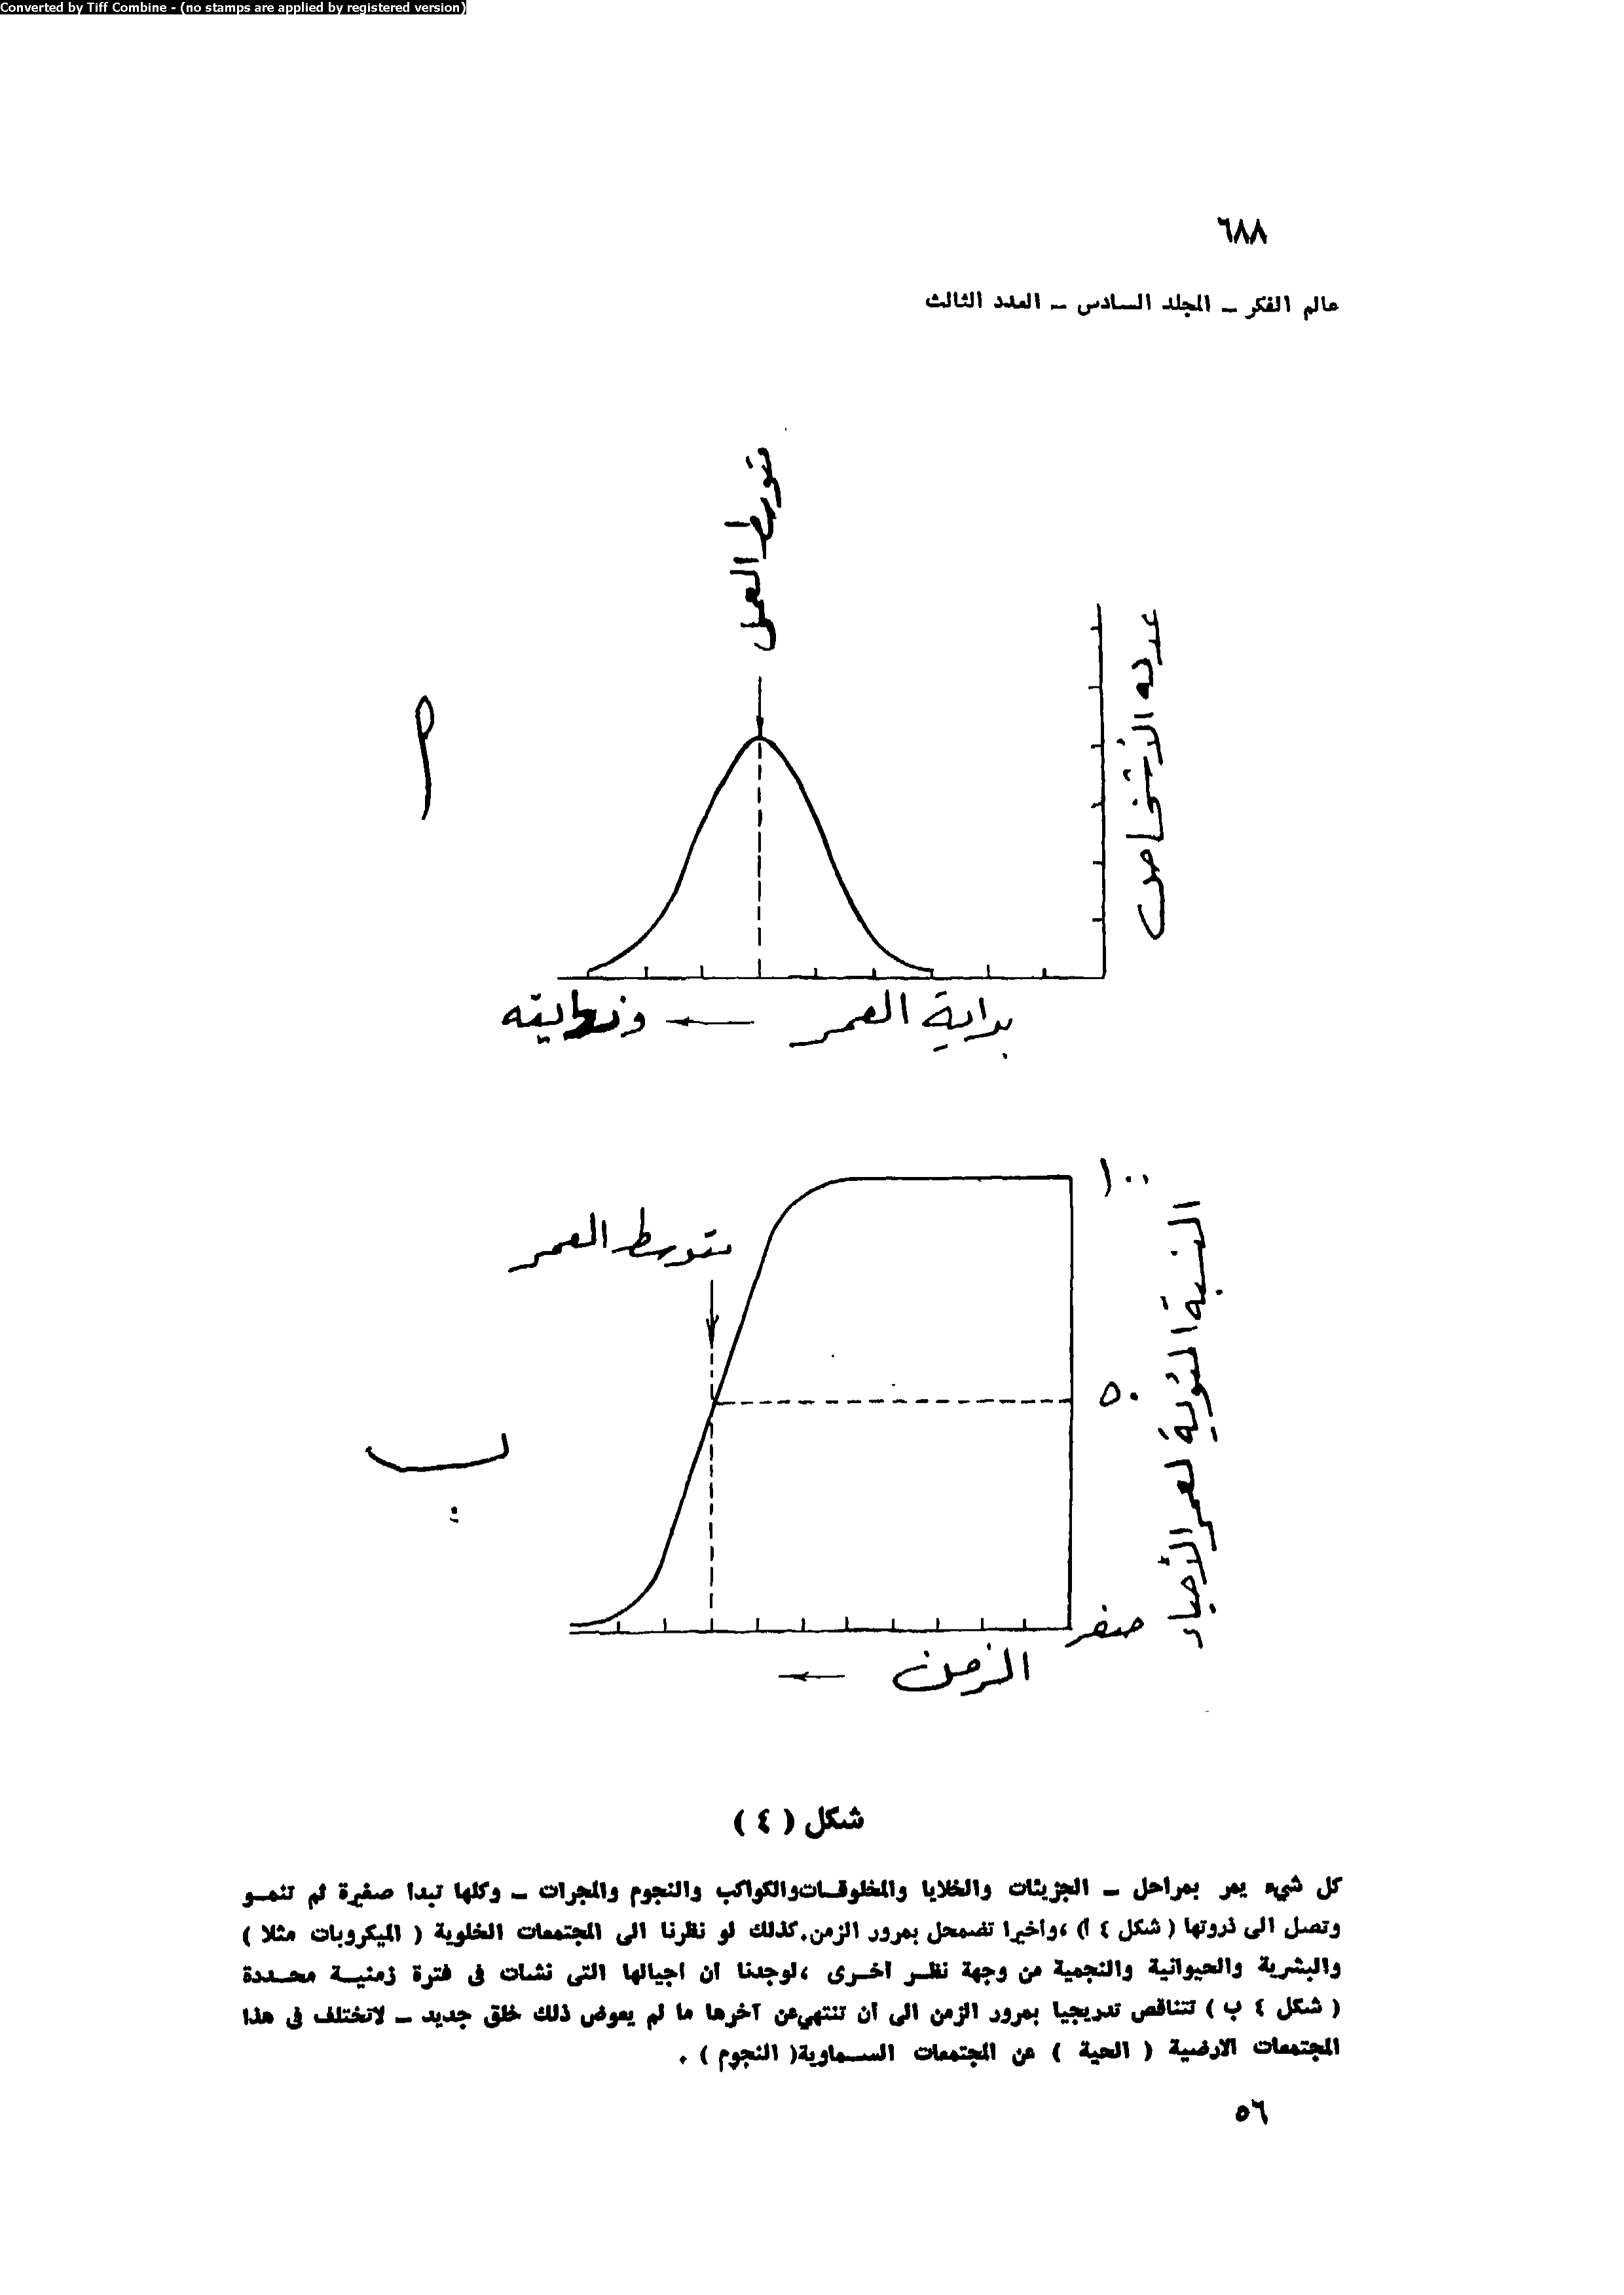 Converted by Tiff Combine - (no stamps are applied by registered version)
٦٨٨
عالم الفكر – المجلد السادس – العدد الثالث
متوسط العمر
عدد الأشخاص
أ
بداية العمر ← ونهايته
١٠٠
متوسط العمر
النسبة المئوية لعمر الأحياء
٥٠
ب
صفر
الزمن ←
شكل ( ٤ )
كل شيء يمر بمراحل – الجزيئات والخلايا والمخلوقات والكواكب والنجوم والمجرات – وكلها تبدا صغيرة ثم تنمو
وتصل الى ذروتها ( شكل ٤ أ) ، واخيرا تضمحل بمرور الزمن. كذلك لو نظرنا الى المجتمعات الخلوية ( الميكروبات مثلا )
والبشرية والحيوانية والنجمية من وجهة نظر اخرى ، لوجدنا ان اجيالها التي نشات في فترة زمنية محددة
( شكل ٤ ب ) تتناقص تدريجيا بمرور الزمن الى أن تنتهي عن آخرها ما لم يعوض ذلك خلق جديد – لاتختلف في هذا
المجتمعات الارضية ( الحية ) عن المجتمعات السماوية ( النجوم ) .
٥٦